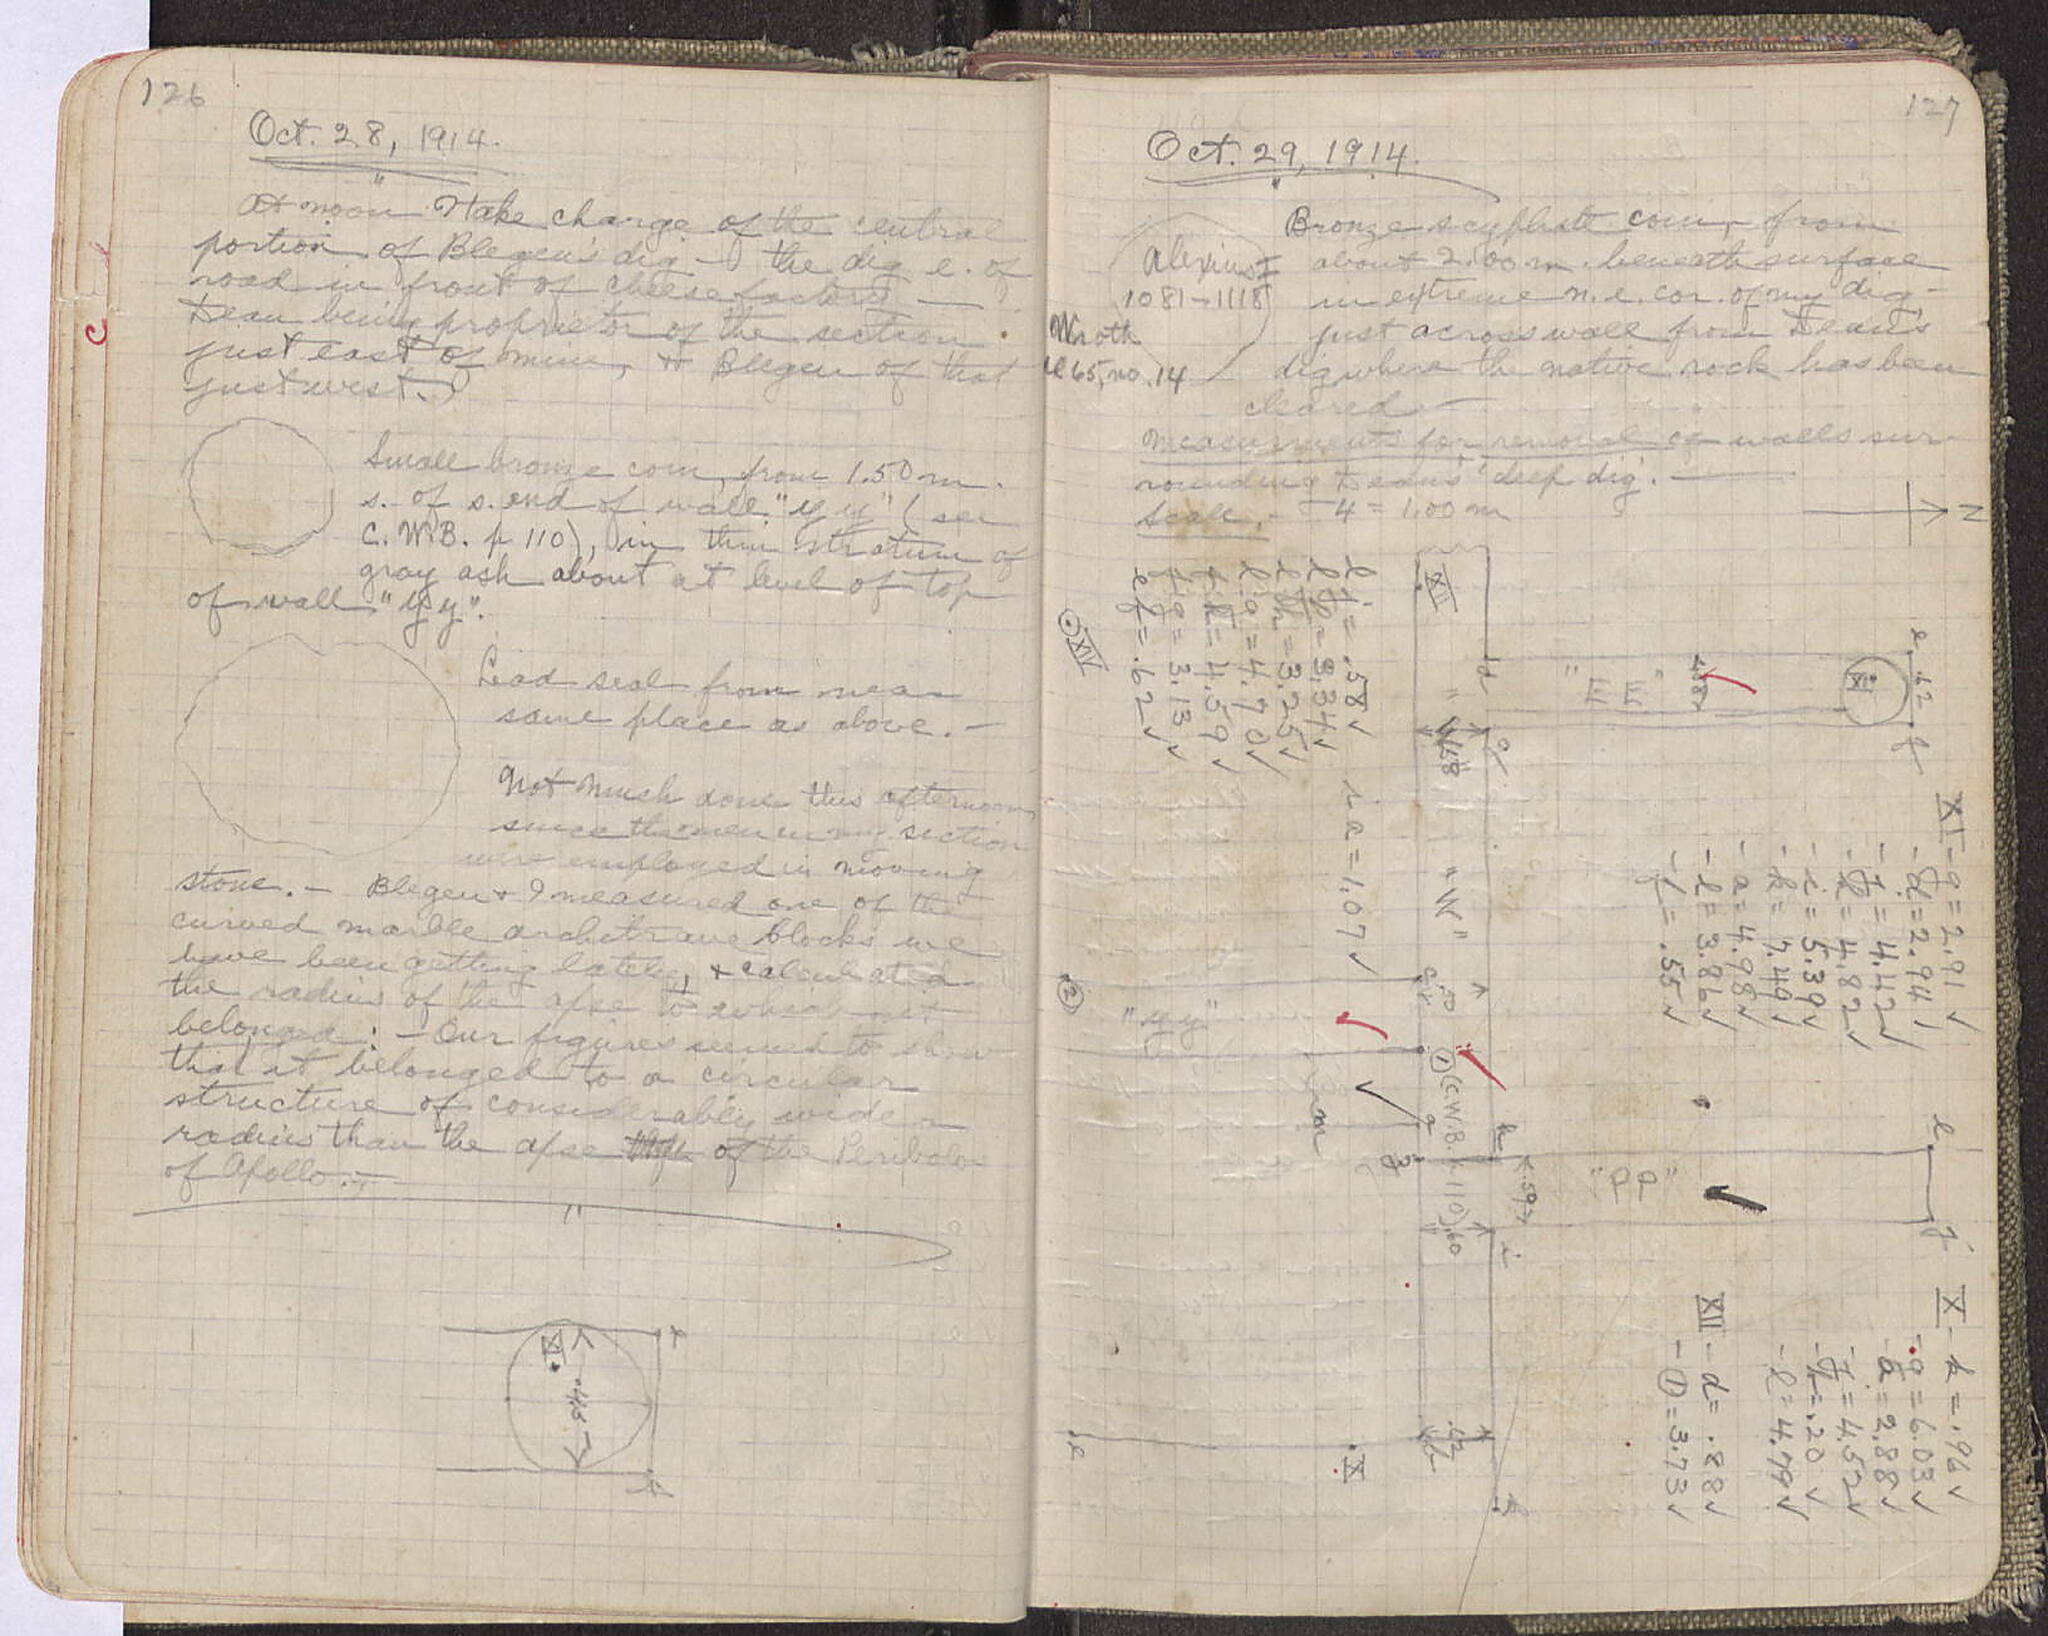 126
Oct. 28, 1914.
At noon I take charge of the central
portion of Blegen's dig - the dig e. of
road in front of cheese factory —
Dean being proprietor of the section
just east of mine, & Blegen of that
just west.
Small bronze coin, from 1.50 m.
s. of s. end of wall "yy" (see
C.W.B. p 110), in thin stratum of
gray ash about at level of top
of wall "yy".
Lead seal from near
same place as above. —
Not much done this afternoon
since the men in my section
were employed in moving
stone. — Blegen & I measured one of the
curved marble architrave blocks we
have been getting lately, & calculated
the radius of the apse to which it
belonged: — Our figures seemed to show
that it belonged to a circular
structure of considerably wider
radius than the apse of the Peribolos
of Apollo. —
XI
127
Oct. 29, 1914.
Bronze scyphate coin, from
about 2.00 m. beneath surface
in extreme n.e. cor. of my dig -
just across wall from Dean's
dig where the native rock has been
cleared —
Alexius I
1081-1118
Wroth
no. 14
Measurements for removal of walls sur-
rounding Dean's 'deep dig'. —
Scale. - 4 = 1.00 m
N
lj = .58 ✓
= 3.34 ✓
= 3.25 ✓
= 4.70 ✓
= 4.59 ✓
= 3.13 ✓
ef = .62 ✓
ia = 1.07 ✓
XIV
XII
d
"EE"
XI
e
.62
f
"W"
"yy"
2
.50
1 (C.W.B. p. 110)
.60
m
g
k
.59
i
"PP"
l
j
X
XI - g = 2.91 ✓
- d = 2.94 ✓
- j = 4.42 ✓
- k = 4.82 ✓
- i = 5.39 ✓
- h = 7.49 ✓
- a = 4.98 ✓
- l = 3.86 ✓
- f = .55 ✓
X - h = .96 ✓
- g = 6.03 ✓
= 2.88 ✓
- j = 4.52 ✓
= .20 ✓
- l = 4.79 ✓
XII - d = .88 ✓
- 1 = 3.73 ✓